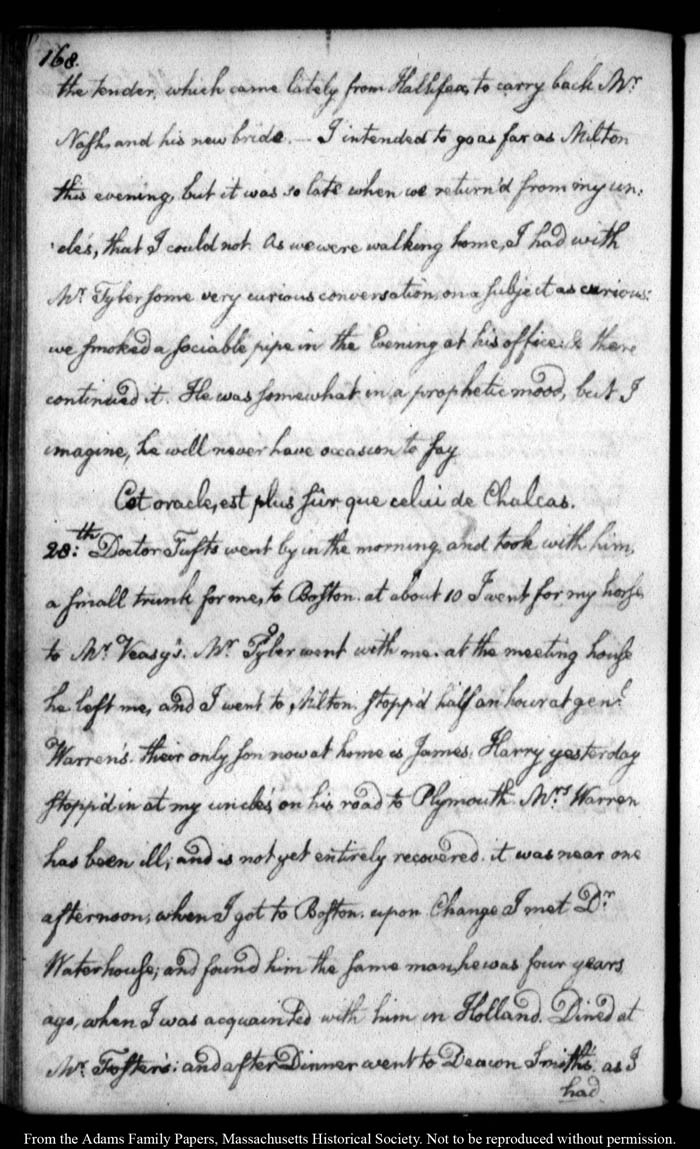 168.
the tender, which came lately from Hallifax, to carry back Mr.
Nash, and his new bride. — I intended to go as far as Milton
this evening, but it was so late when we return'd from my un:
:cle's, that I could not. As we were walking home, I had with
Mr. Tyler some very curious conversation, on a subject as curious:
we smoked a sociable pipe in the Evening at his office: & there
continued it. He was somewhat in a prophetic mood, but I
imagine, he will never have occasion to say
Cet oracle, est plus sûr que celui de Chalcas.
28:th Doctor Tufts went by in the morning, and took with him,
a small trunk for me, to Boston. at about 10 I went for my horse
to Mr. Veasy's. Mr. Tyler went with me. at the meeting house
he left me, and I went to Milton. stopp'd half an hour at genl.
Warren's. their only son now at home is James. Harry yesterday
stopp'd in at my uncle's on his road to Plymouth. Mrs. Warren
has been ill; and is not yet entirely recovered. it was near one
afternoon, when I got to Boston. upon Change I met Dr.
Waterhouse; and found him the same man, he was four years
ago, when I was acquainted with him in Holland. Dined at
Mr. Foster's: and after Dinner went to Deacon Smith's. as I
had
From the Adams Family Papers, Massachusetts Historical Society. Not to be reproduced without permission.